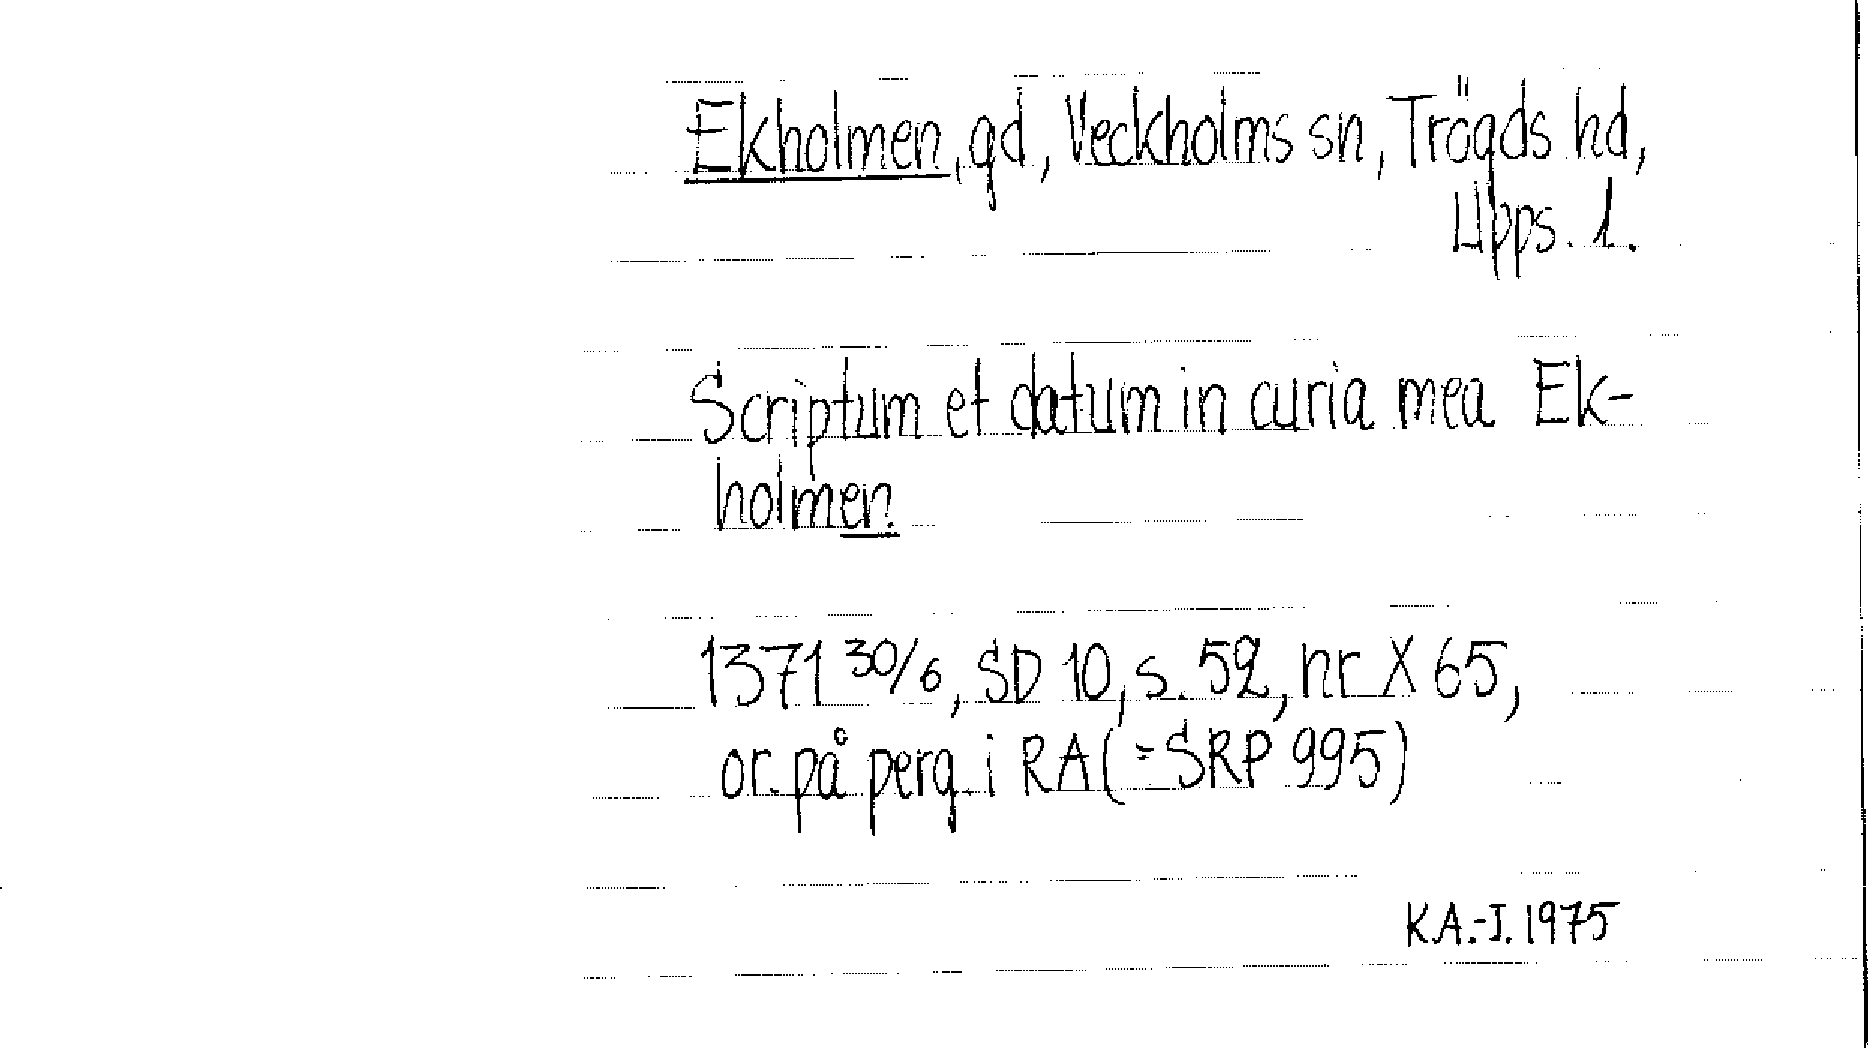 Ekholmen, gd, Veckholms sn, Trögds hd,
Upps. l.
Scriptum et datum in curia mea Ek-
holmen
1371 30/6, SD 10, s. 52, nr X 65,
or. på perg. i RA (=SRP 995)
K.A.-J. 1975